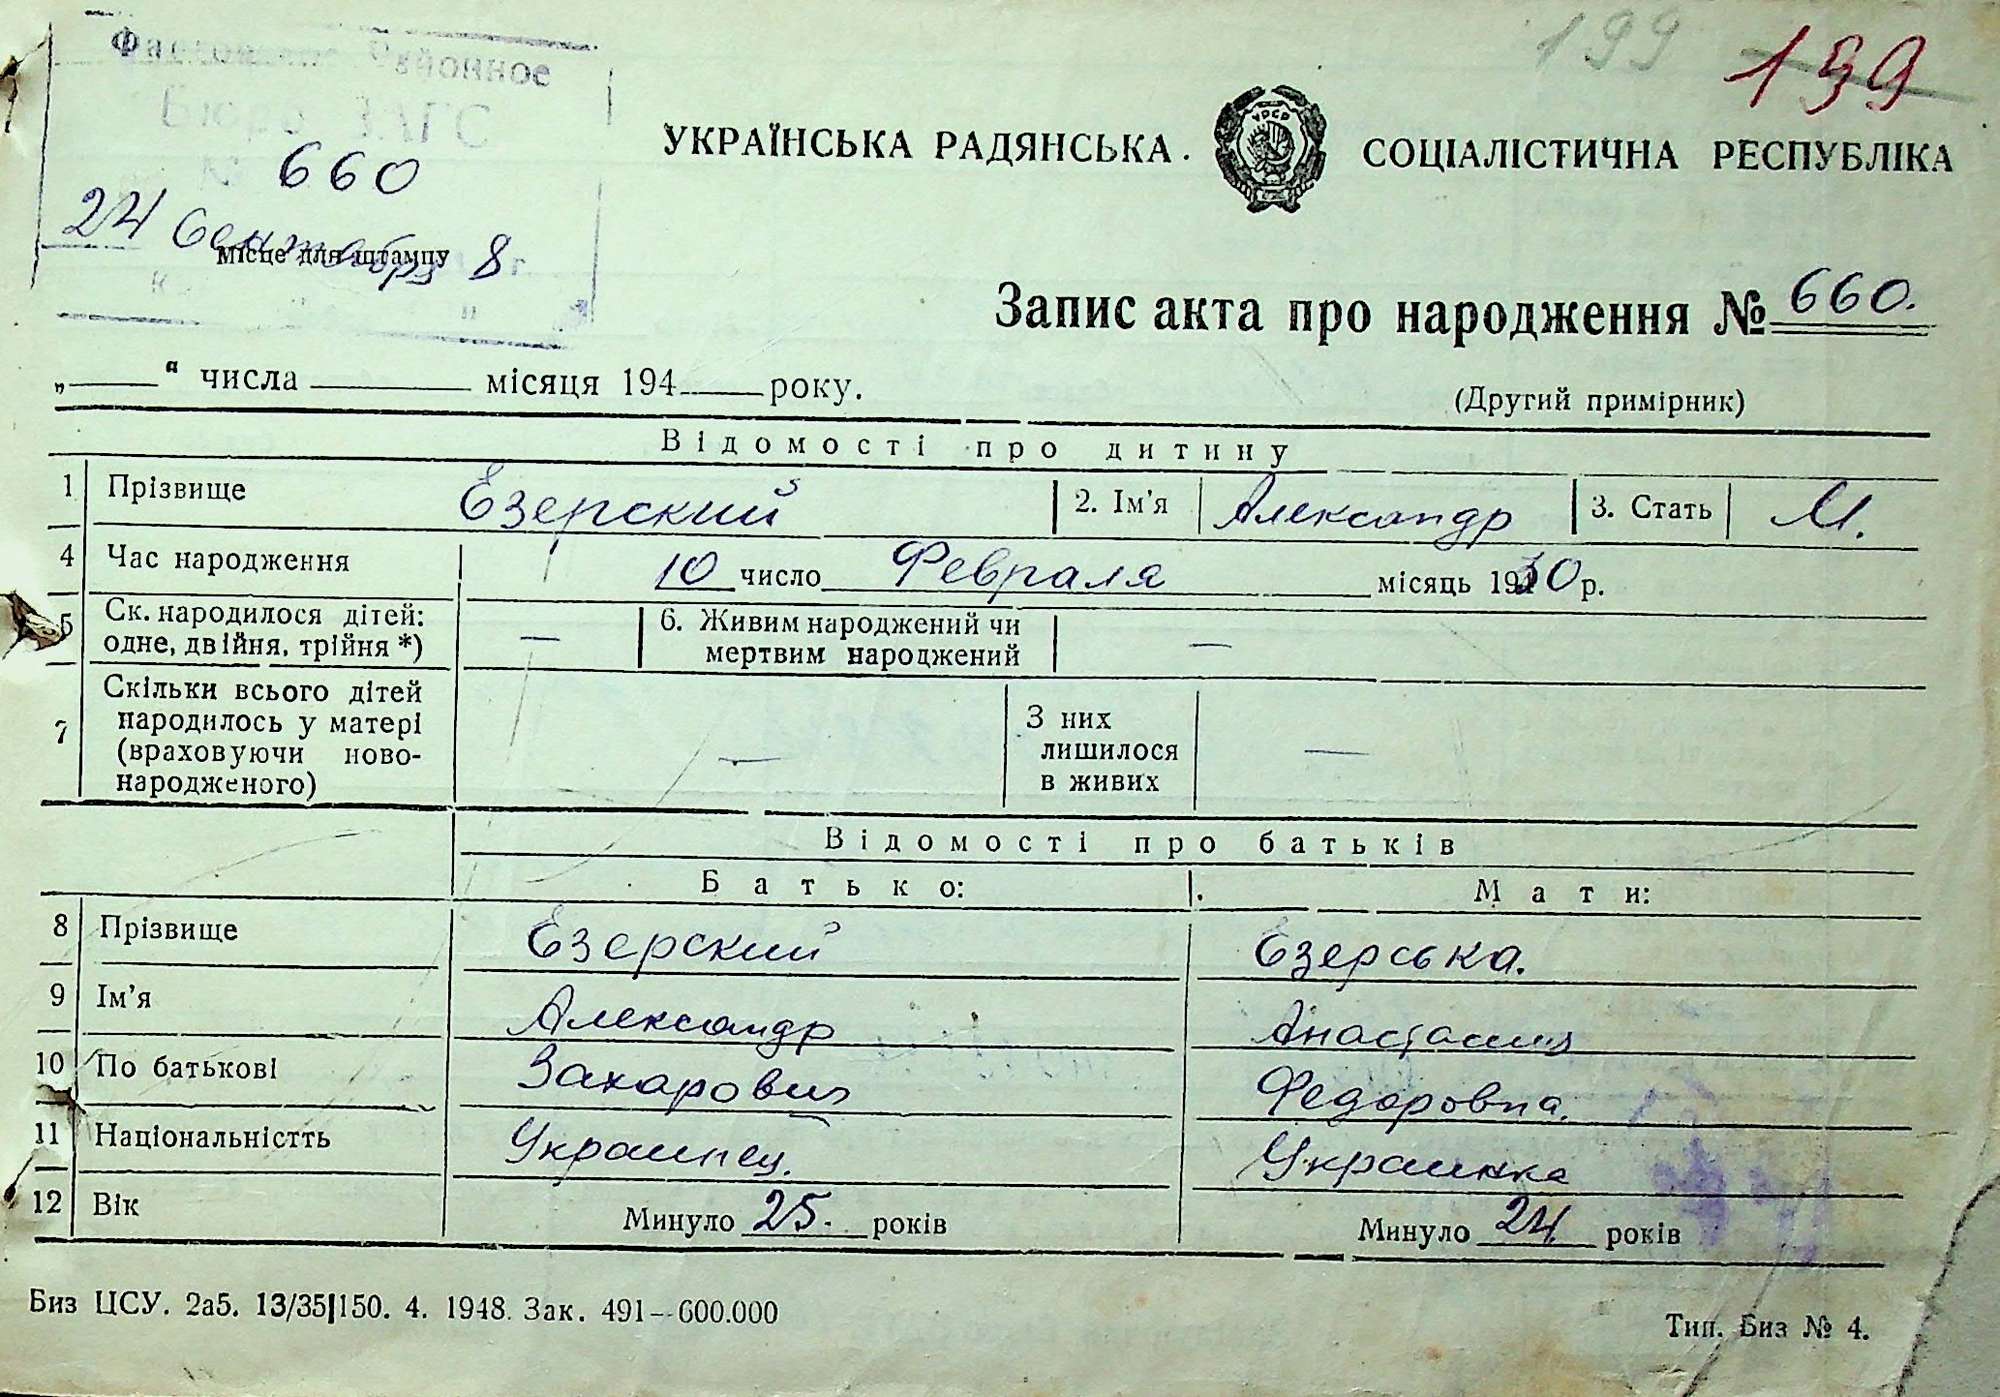 199 199
Фастовское Районное
Бюро ЗАГС
№ 660
24 Сентября 8 г.
Місце для штампу
УКРАЇНСЬКА РАДЯНСЬКА СОЦІАЛІСТИЧНА РЕСПУБЛІКА
УРСР
Запис акта про народження № 660.
„ “ числа місяця 194 року.
(Другий примірник)
Відомості про дитину
1 Прізвище Езерский 2. Ім'я Александр 3. Стать М.
4 Час народження 10 число Февраля місяць 1930 р.
5 Ск. народилося дітей: одне, двійня, трійня *) — 6. Живим народжений чи мертвим народжений —
7 Скільки всього дітей народилось у матері (враховуючи ново-народженого) — З них лишилося в живих —
Відомості про батьків
Батько: Мати:
8 Прізвище Езерский Езерська.
9 Ім'я Александр Анастасия
10 По батькові Захарович Федоровна.
11 Національністть Украинец. Украинка
12 Вік Минуло 25. років Минуло 24. років
Биз ЦСУ. 2а5. 13/35|150. 4. 1948. Зак. 491—600.000
Тип. Биз № 4.